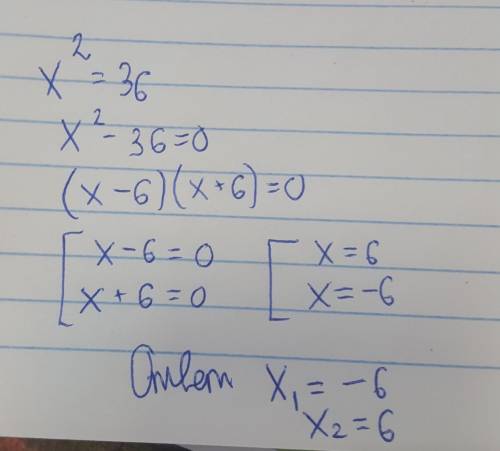 x² = 36
x² - 36 = 0
(x - 6)(x + 6) = 0
[ x - 6 = 0 [ x = 6
x + 6 = 0 x = -6
Ответ x₁ = -6
x₂ = 6